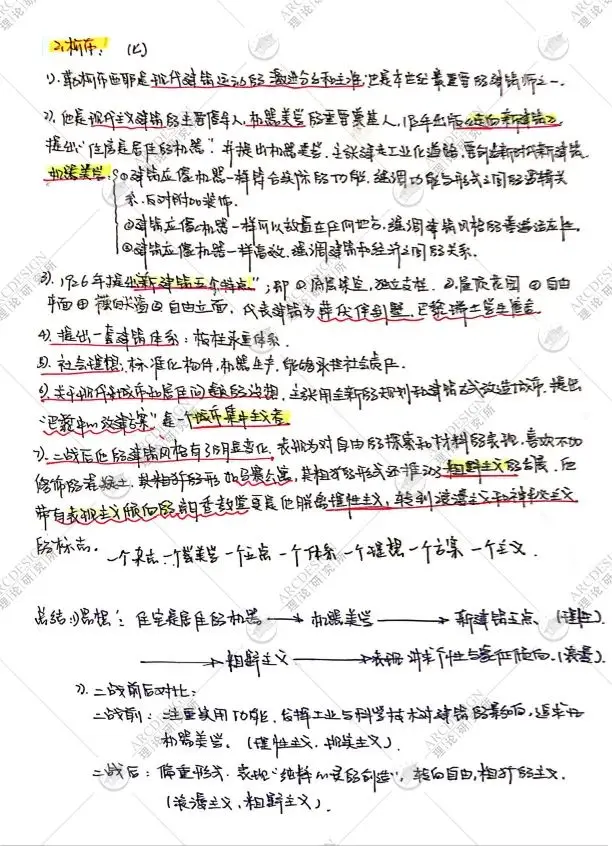 2、柯布：(七)
1). 勒·柯布西耶是现代建筑运动的激进分子和主将,也是本世纪最重要的建筑师之一。
2). 他是现代主义建筑的主要倡导人,机器美学的重要奠基人, 年出版《走向新建筑》
提出"住房是居住的机器",并提出机器美学,主张建走工业化道路,要创造新时代新建筑
机器美学: ①建筑应像机器一样符合实际的功能,强调功能与形式之间的逻辑关
系,反对附加装饰。
②建筑应像机器一样可以放置在任何地方,强调建筑风格的普遍适应性。
③建筑应像机器一样高效,强调建筑和经济之间的关系。
3). 1926年提出"新建筑五个特点",即①底层架空,独立支柱 ②屋顶花园 ③自由
平面④横向长窗⑤自由立面,代表建筑为萨伏伊别墅,巴黎瑞士学生宿舍
4). 提出一套建筑体系:板柱承重体系.
5). 社会理想:标准化构件,机器生产,能够承担社会责任.
6). 关于现代城市和居住问题的设想,主张用全新的规划和建筑方式改造城市,提出
"巴黎中心改建方案"是一个城市集中主义者
7). 二战后他的建筑风格有了明显变化,表现为对自由的探索和材料的表现,喜欢不加
修饰的混凝土,其粗犷的形 马赛公寓,其粗犷的形式还推动了粗野主义的发展,后
带有表现主义倾向的朗香教堂更是他脱离理性主义,转到浪漫主义和神秘主义
的标志。 一个杂志.一个美学一个五点一个体系一个理想一个方案一个主义.
总结:1)思想: 住宅是居住的机器→机器美学→新建筑五点、(理性).
→粗野主义→表现 讲求个性与象征倾向.(浪漫).
2). 二战前后对比:
二战前:注重实用功能,发挥工业与科学技术对建筑的影响,追求
机器美学。(理性主义、现代主义).
二战后:偏重形式,表现"纯粹心灵的创造",转向自由,粗犷的主义.
(浪漫主义,粗野主义).
ARCDESIGN
理论研究所